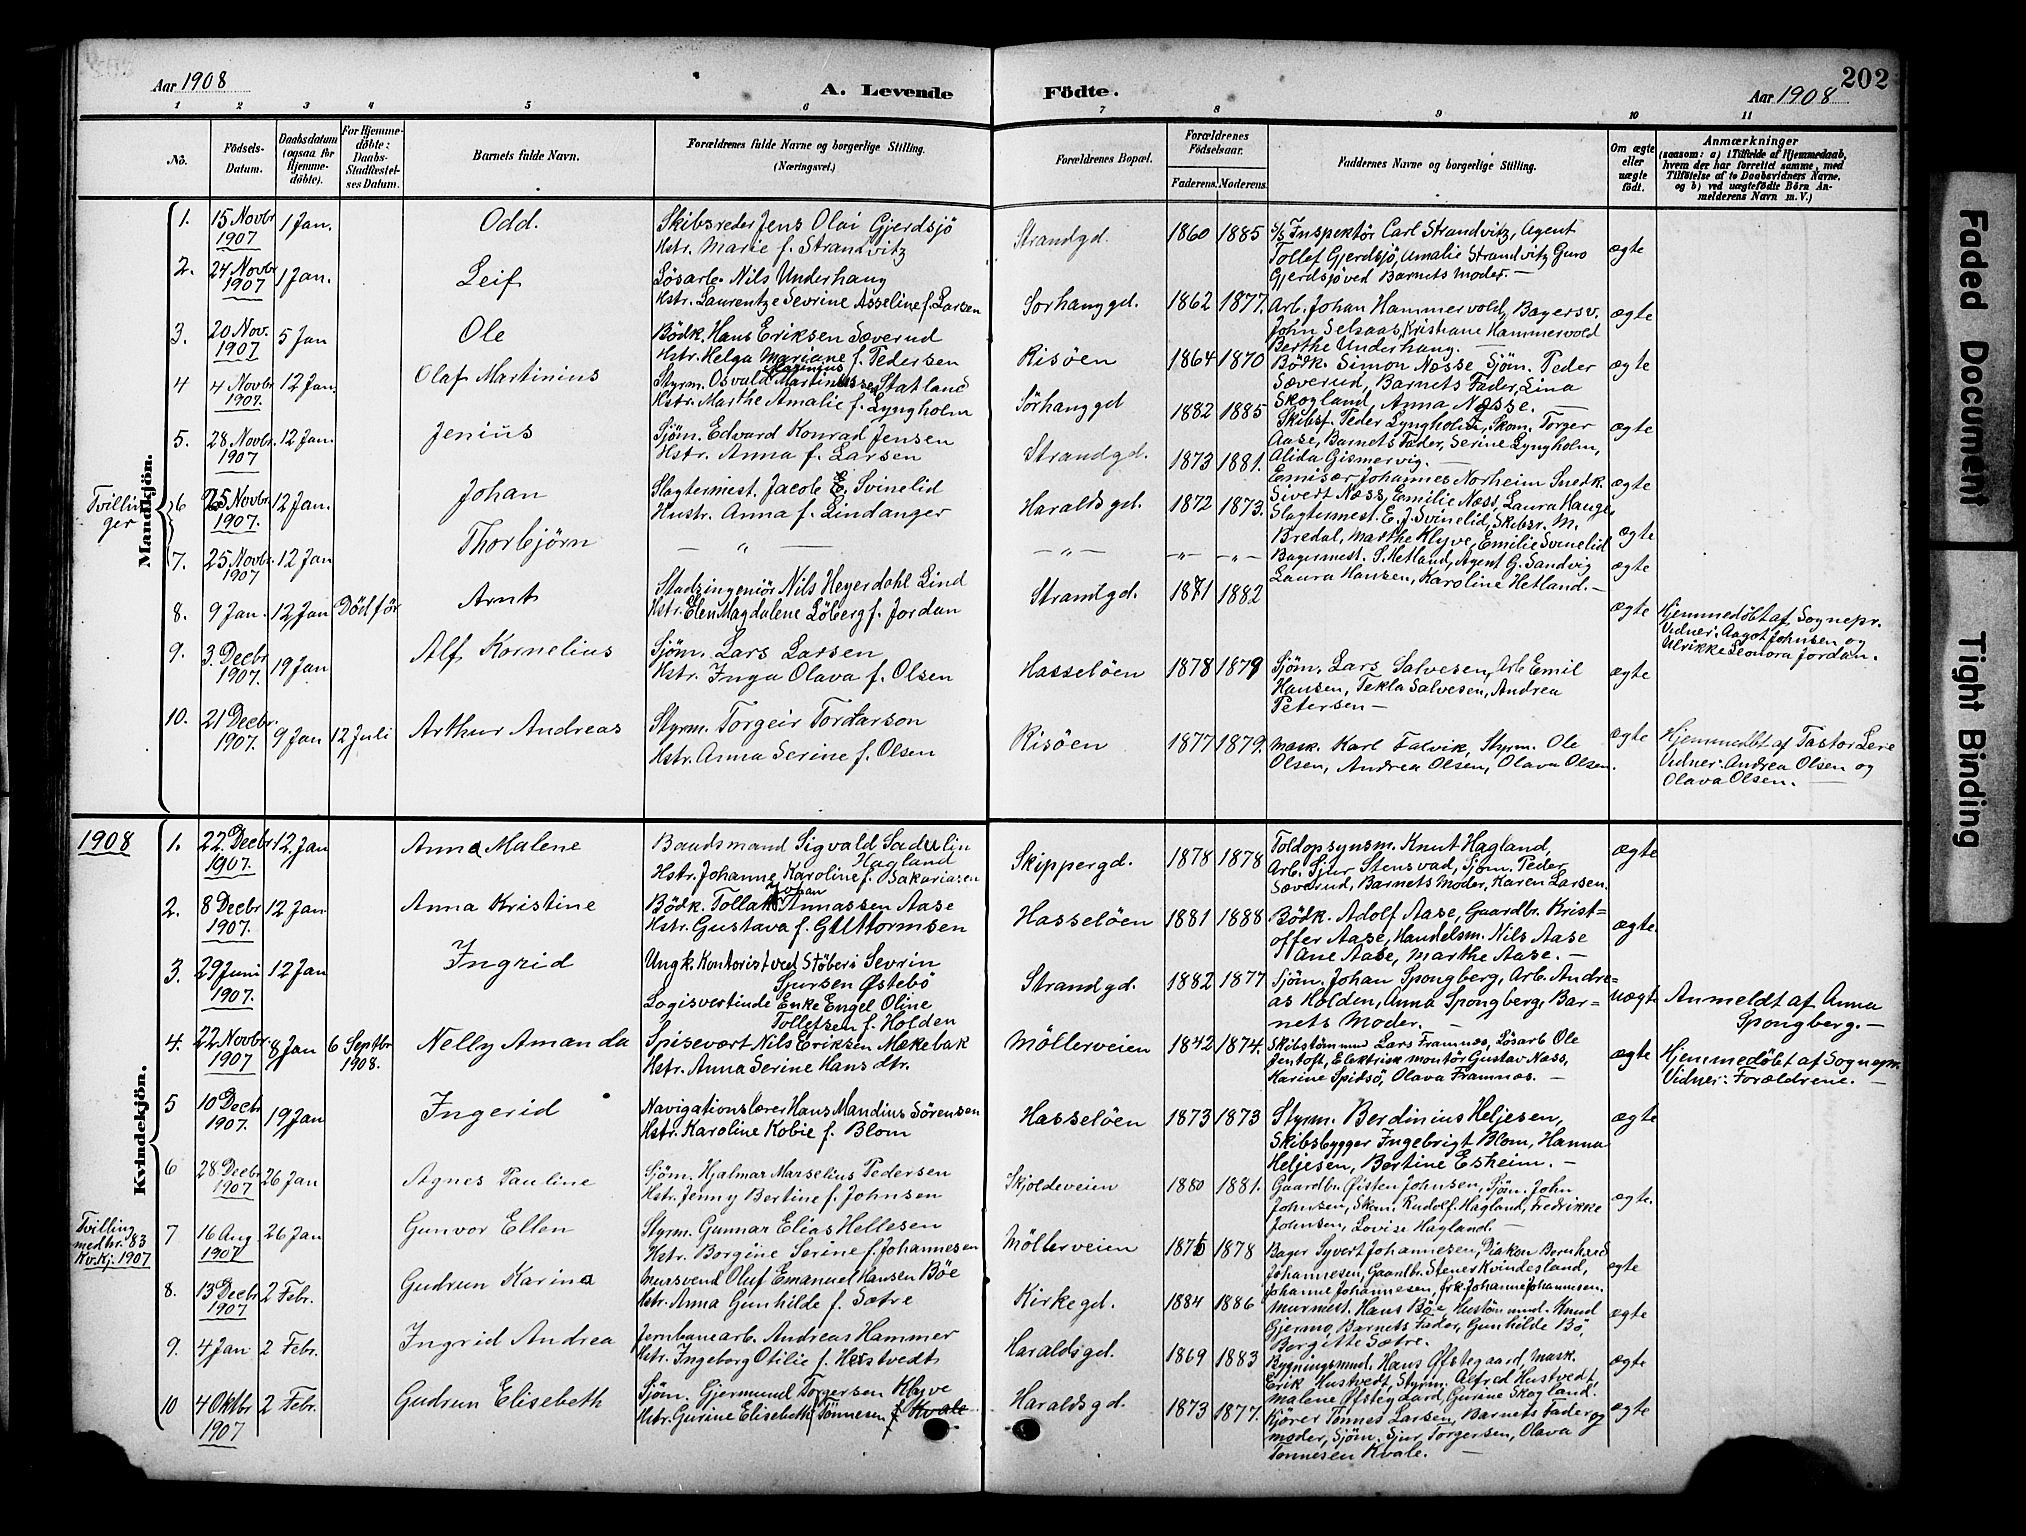 Aar 1908
A. Levende
Födte.
Aar 1908
202
1 2 3 4 5 6 7 8 9 10 11
No.
Födsels-
Datum.
Daabsdatum
(ogsaa for
Hjemme-
döbte).
For Hjemme-
döbte:
Daabs-
Stadfæstel-
ses Datum.
Barnets fulde Navn.
Forældrenes fulde Navne og borgerlige Stilling.
(Næringsvei.)
Forældrenes Bopæl.
Forældrenes
Födselsaar.
Faderens. Moderens.
Faddernes Navne og borgerlige Stilling.
Om ægte
eller
uægte
födt.
Anmærkninger
(saasom: a) i Tilfælde af Hjemmedaab,
hvem der har forrettet samme, med
Tilföielse af to Daabsvidners Navne,
og b) ved uægtefödte Börn An-
melderens Navn m. V.)
Mandkjön.
1. 15 Novbr 1907 1 Jan. Odd.
Skibsreder Jens Olai Gjerdsjö
Hstr. Marie f. Strandvitz
Strandgd. 1860 1885
S/S Inspektör Carl Strandvitz, Agent
Tollef Gjerdsjö, Amalie Strandvitz Guro
Gjerdsjö ved Barnets Moder. —
ægte
2. 24 Novbr 1907 1 Jan. Leif
Løsarb. Nils Underhaug
Hstr. Laurentze Sevrine Asseline f. Larsen
Sørhauggd. 1862 1877.
Arb. Johan Hammervold, Bagersv.
John Selsaas, Kristiane Hammervold
Berthe Underhaug. —
ægte
3. 20 Nov. 1907 5 Jan Ole
Bödk. Hans Eriksen Sæverud
Hstr. Helga Mariane f. Pedersen
Risöen 1864 1870
Bödk. Simon Næsse Sjöm. Peder
Sæverud, Barnets Fader, Lina
Skogland, Anna Næsse. —
ægte
4 4 Novbr 1907. 12 Jan. Olaf Martinius
Styrm. Osvald Martinussen Statland
Hstr. Marthe Amalie f. Lyngholm
Sörhauggd 1882 1885
Skibsf. Peder Lyngholm, Skom. Torger
Aase, Barnets Fader, Serine Lyngholm,
Alida Gismervig. —
ægte
5. 28 Novbr. 1907 12 Jan. Jenius
Sjöm. Edvard Konrad Jensen
Hstr. Anna f. Larsen
Strandgd. 1873 1881.
Emisær Johannes Norheim Snedk.
Sivert Næss, Emilie Næss, Laura Hauge
ægte
Tvillin
ger
6 25 Novbr 1907. 12 Jan. Johan
Slagtermest. Jacob E. Svinelid
Hustr. Anna f. Lindanger
Haraldsgd. 1872 1873.
Slagtermest. E. J. Svinelid, Skibsr. M.
Bredal, Marthe Klyve, Emilie Svinelid
ægte
7. 25 Novbr. 1907 12 Jan Thorbjörn
— „ —
— „ — —„— —„—
Bagermest. S. Hetland, Agent G. Sandvig
Laura Hansen, Karoline Hetland. —
ægte
8. 9 Jan. 12 Jan Död för Arnt
Stadsingeniör Nils Heyerdahl Lind
Hstr. Elen Magdalene Löberg f. Jordan
Strandgd. 1871 1882
ægte
Hjemmedøbt af Sognepr.
Vidner: Aagot Johnsen og
Ulrikke Leonora Jordan.
9. 3 Decbr 1907. 19 Jan Alf Kornelius
Sjöm. Lars Larsen
Hstr. Inga Olava f. Olsen
Hasselöen 1878 1879
Sjöm. Lars Salvesen, Arb. Emil
Hansen, Tekla Salvesen, Andrea
Petersen —
ægte
10. 21 Decbr. 1907. 9 Jan 12 Juli Arthur Andreas
Styrm. Torgeir Tordarson
Hstr. Anna Serine f. Olsen
Risöen 1877 1879.
Mask. Karl Falvik, Styrm. Ole
Olsen, Andrea Olsen, Olava Olsen.
ægte
Hjemmedöbt af Pastor Lere
Vidner: Andrea Olsen og
Olava Olsen. —
1908
Kvindekjön.
1. 22 Decbr. 1907. 12 Jan Anna Malene
Baadsmand Sigvald Sadulin
Hagland
Hstr. Johanne Karoline f. Sakariasen
Skippergd. 1878 1878
Toldopsynsm. Knut Hagland,
Arb. Sjur Stensvad, Sjöm. Peder
Sæverud, Barnets Moder, Karen Larsen.
ægte
2. 8 Decbr 1907. 12 Jan Anna Kristine
Bödk. Tollak Johan Annassen Aase
Hstr. Gustava f. Guttormsen
Hasselöen 1881 1888
Bödk. Adolf Aase, Gaardbr. Krist=
offer Aase, Handelsm. Nils Aase
Ane Aase, Marthe Aase. —
ægte.
3. 29 Juni 1907. 12 Jan Ingrid
Ungk. Kontorist ved Støberi Sevrin
Sjursen Østebö
Logisvertinde Enke Engel Oline
Tollefsen f. Holden
Strandgd. 1882 1877
Sjöm. Johan Spongberg, Arb. Andre=
as Holden, Anna Spongberg, Bar=
nets Moder. —
uægte
Anmeldt af Anna
Spongberg. —
4. 22 Novbr. 1907 8 Jan 6 Septbr 1908. Nelly Amanda
Spisevært Nils Eriksen Mækebak
Hstr. Anna Serine Hans dtr.
Möllerveien 1842 1874.
Skibstömmd Lars Framnæs, Lösarb Ole
Jentoft, Elektrisk montör Gustav Næss,
Karine Spidsö, Olava Framnæs. —
ægte
Hjemmedöbt af Sognepr.
Vidner: Forældrene. —
5 10 Decbr 1907. 19 Jan Ingerid
Navigationslærer Hans Mandius Sörensen
Hstr. Karoline Kobie f. Blom
Hasselöen 1873 1873
Styrm. Berdinius Heljesen,
Skibsbygger Ingebrigt Blom, Hanna
Heljesen, Bertine Esheim. —
ægte
6 28 Decbr 1907 26 Jan Agnes Pauline
Sjöm. Hjalmar Marselius Pedersen
Hstr. Jenny Bertine f. Johnsen
Skjoldeveien 1880 1881.
Gaardbr. Øisten Johnsen, Sjöm. John
Johnsen, Skom. Rudolf Hagland, Fredrikke
Johnsen, Lovise Hagland. —
ægte.
Tvilling
med nr. 83
Kv.kj. 1907
7 16 Aug 1907 26 Jan Gunvor Ellen
Styrm. Gunnar Elias Hellesen
Hstr. Borgine Serine f. Johannesen
Möllerveien 1876 1878
Bager Syvert Johannesen, Diakon Bernhard
Johannesen, Gaardbr. Stener Kvindesland,
Johanne Johannesen, frk Johanne Johannesen.
ægte
8. 13 Decbr 1907 2 Febr. Gudrun Karina
Mursvend Oluf Emanuel Hansen Böe
Hstr. Anna Gunhilde f. Sætre
Kirkegd. 1884 1886
Murmest. Hans Böe, Hustömmd. Knud
Gjermo, Barnets Fader, Gunhilde Bö,
Borgitte Sætre.
ægte
9. 4 Jan 2 Febr. Ingrid Andrea
Jernbanearb. Andreas Hammer
Hstr. Ingeborg Otilie f. Hustvedt
Haraldsgd. 1869 1883
Bygningsmd. Hans Øfstegaard, Mask.
Erik Hustvedt, Styrm. Alfred Hustvedt,
Malene Øfstegaard, Gurine Skogland.
ægte
10 4 Oktbr 1907 2 Febr. Gudrun Elisebeth
Sjöm. Gjermund Torgersen Klyve
Hstr. Gurine Elisebeth Tönnesen f. Kvale
Haraldsgd. 1873 1877.
Kjörer Tonnes Larsen, Barnets Fader og
moder, Sjöm. Sjur Torgersen, Olava
Tonnesen Kvale. —
ægte
Faded Document
Tight Binding